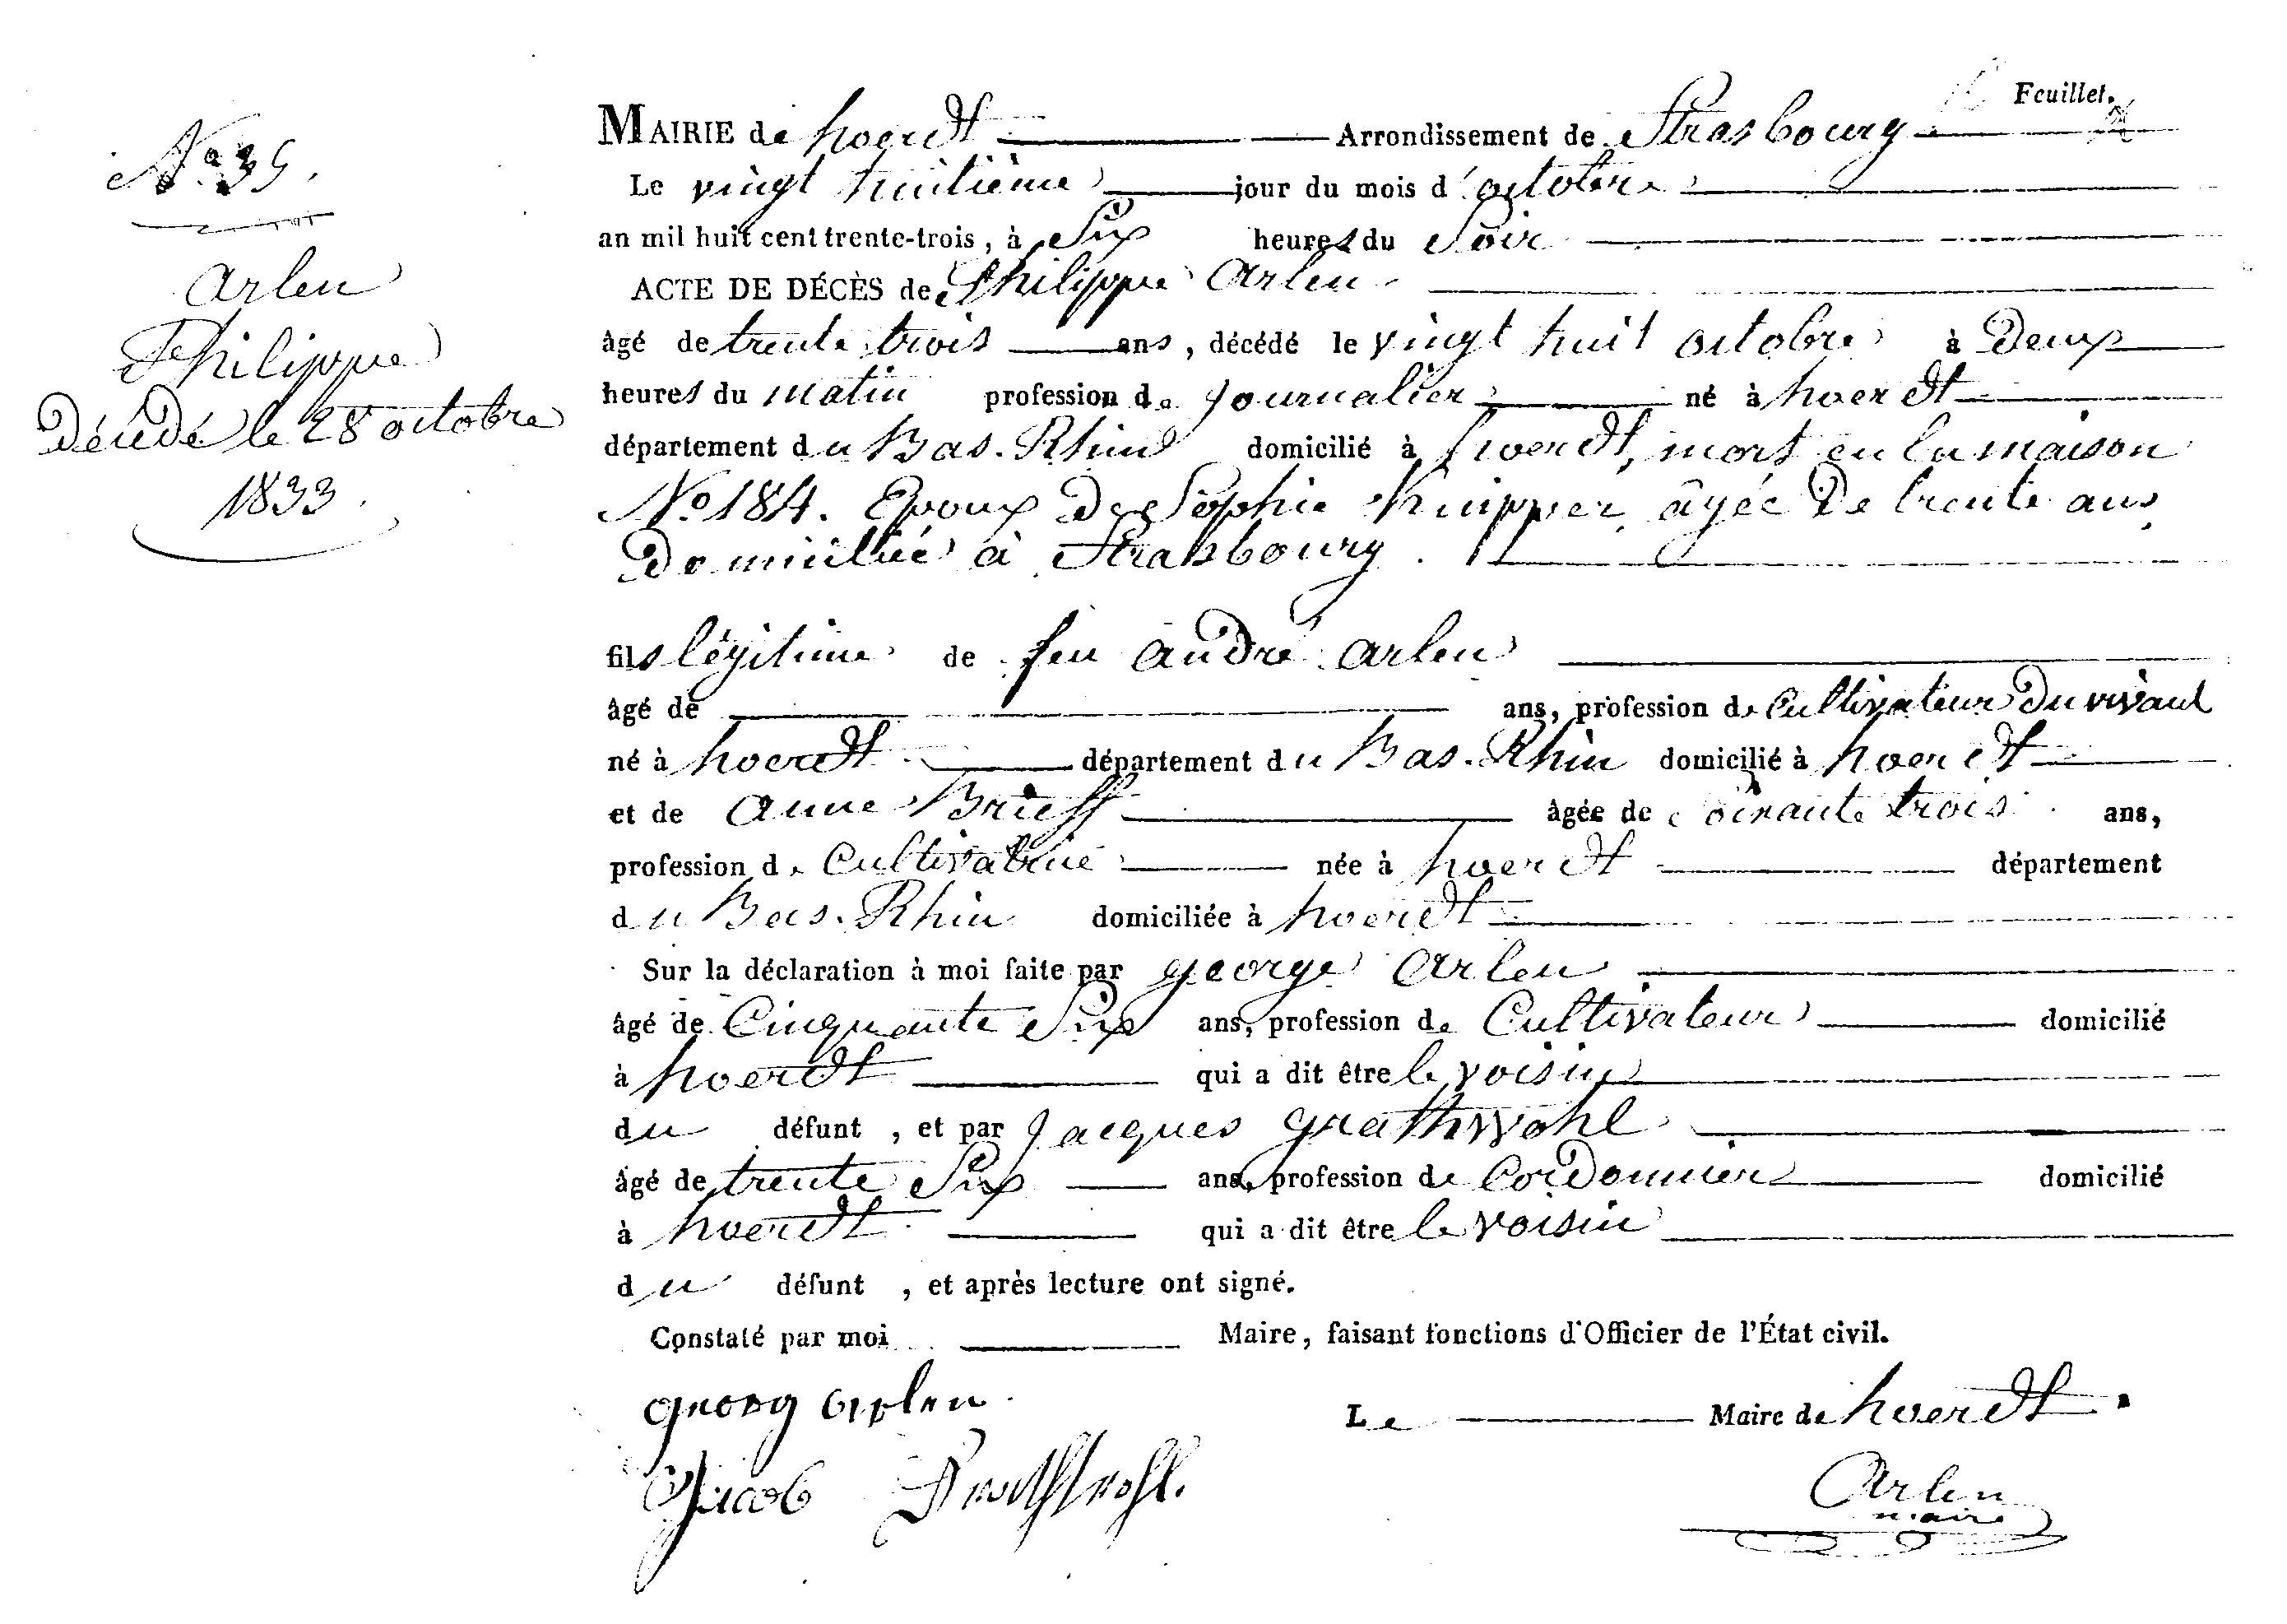 Feuillet.
MAIRIE de hoerdt Arrondissement de Strasbourg
Le vingt huitième jour du mois d'octobre
an mil huit cent trente-trois, à Six heures du Soir
ACTE DE DÉCÈS de Philippe Arlen
âgé de trente trois ans, décédé le vingt huit octobre à Deux
heures du matin profession de journalier né à hoerdt
département du Bas-Rhin domicilié à hoerdt, mort en la maison
No 184. Epoux De Sophie Knipper, âgée De trente ans
Domiciliée à Strasbourg.
fils légitime de feu André Arlen
âgé de ans, profession de Cultivateur Du vivant
né à hoerdt département du Bas-Rhin domicilié à hoerdt
et de Anne Brieff âgée de Soixante trois ans,
profession de Cultivatrice née à hoerdt département
du Bas-Rhin domiciliée à hoerdt
Sur la déclaration à moi faite par George Arlen
âgé de Cinquante Six ans, profession de Cultivateur domicilié
à hoerdt qui a dit être le voisin
du défunt, et par Jacques Grathwohl
âgé de trente Six ans, profession de Cordonnier domicilié
à hoerdt qui a dit être le voisin
du défunt, et après lecture ont signé.
Constaté par moi Maire, faisant fonctions d'Officier de l'État civil.
Georg Arlen
Le Maire de hoerdt.
Jacob Grathwohl.
Arlen
maire
No 35.
Arlen
Philippe
Décédé le 28 octobre
1833.